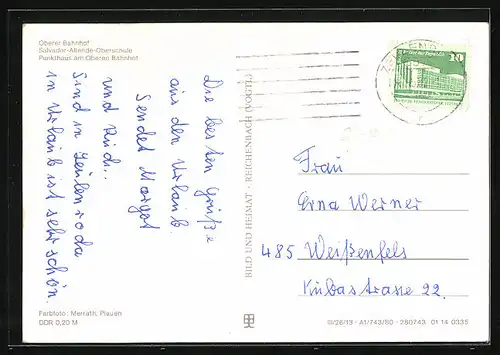 Oberer Bahnhof
Salvador-Allende-Oberschule
Punkthaus am Oberen Bahnhof
Die besten Grüße
aus den Urlaub.
Sendet Margot
und Rudi.
Sind in Zeulenroda
in Urlaub ist sehr schön.
Farbfoto: Merrath, Plauen
DDR 0,20 M
BILD UND HEIMAT · REICHENBACH (VOGTL)
10
Frau
Erna Werner
485 Weißenfels
Kubastrasse 22.
III/26/13 · A1/743/80 · 280743 01 14 0335